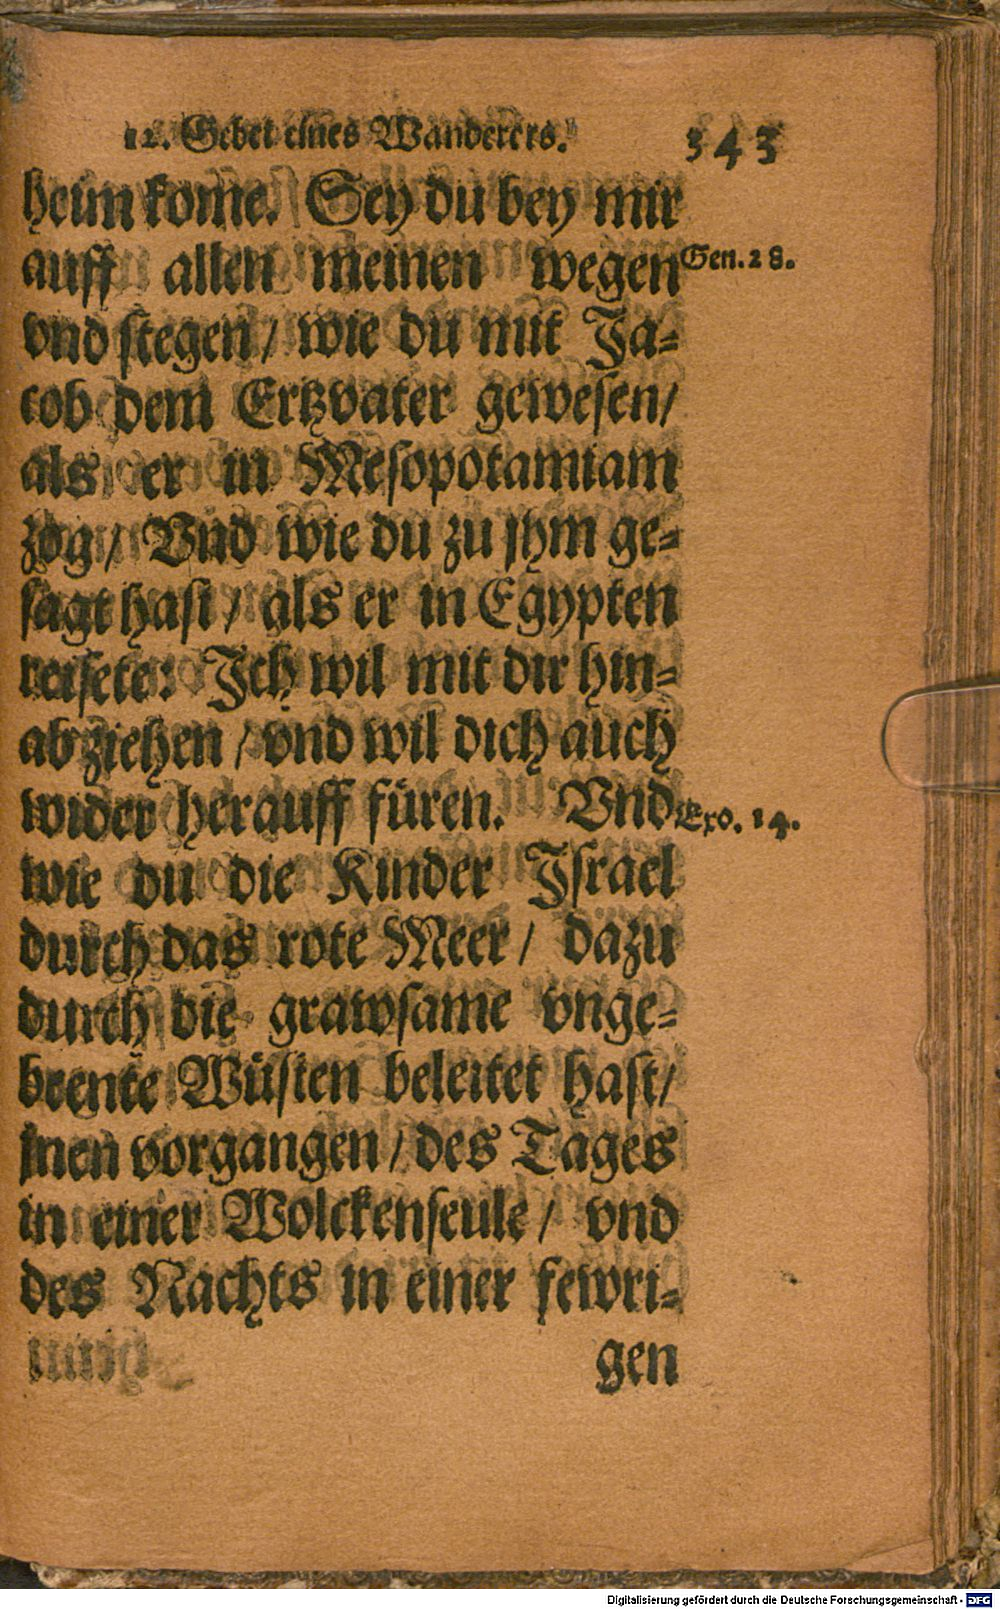 12. Gebet eines Wanderers. 343
heim kome. Sey du bey mir
auff allen meinen wegen Gen. 28.
vnd stegen / wie du mit Ja-
cob dem Ertzvater gewesen /
als er in Mesopotamiam
zog / Vnd wie du zu jhm ge-
sagt hast / als er in Egypten
reisete: Ich wil mit dir hin-
ab ziehen / vnd wil dich auch
wider herauff füren. Vnd Exo. 14.
wie du die Kinder Israel
durch das rote Meer / dazu
durch die grawsame vnge-
brente Wüsten beleitet hast /
jnen vorgangen / des Tages
in einer Wolckenseule / vnd
des Nachts in einer fewri-
gen
Digitalisierung gefördert durch die Deutsche Forschungsgemeinschaft - DFG